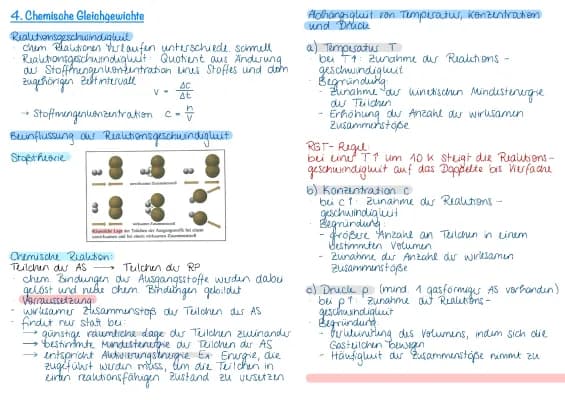 4. Chemische Gleichgewichte
Reaktionsgeschwindigkeit
· chem. Reaktionen verlaufen unterschiedl. schnell
· Reaktionsgeschwindigkeit: Quotient aus Änderung
der Stoffmengenkonzentration eines Stoffes und dem
zugehörigen Zeitintervall
v = Δc/Δt
→ Stoffmengenkonzentration c = n/V
Beeinflussung der Reaktionsgeschwindigkeit
Stoßtheorie
Chemische Reaktion:
Teilchen der AS → Teilchen der RP
· chem. Bindungen der Ausgangsstoffe werden dabei
gelöst und neue chem. Bindungen gebildet
Voraussetzung
- wirksamer Zusammenstoß der Teilchen der AS
- findet nur statt bei:
→ günstige räumliche Lage der Teilchen zueinander
→ bestimmte Mindestenergie der Teilchen der AS
→ entspricht Aktivierungsenergie EA: Energie, die
zugeführt werden muss, um die Teilchen in
einen reaktionsfähigen Zustand zu versetzen
Abhängigkeit von Temperatur, Konzentration
und Druck
a) Temperatur T
· bei T↑: Zunahme der Reaktions-
geschwindigkeit
· Begründung:
- Zunahme der kinetischen Mindestenergie
der Teilchen
- Erhöhung der Anzahl der wirksamen
Zusammenstöße
RGT-Regel:
bei einer T↑ um 10 K steigt die Reaktions-
geschwindigkeit auf das Doppelte bis Vierfache
b) Konzentration c
· bei c↑: Zunahme der Reaktions-
geschwindigkeit
· Begründung:
- größere Anzahl an Teilchen in einem
bestimmten Volumen
- Zunahme der Anzahl der wirksamen
Zusammenstöße
c) Druck p (mind. 1 gasförmiger AS vorhanden)
· bei p↑: Zunahme der Reaktions-
geschwindigkeit
· Begründung:
- Verkleinerung des Volumens, indem sich die
Gasteilchen bewegen
- Häufigkeit der Zusammenstöße nimmt zu